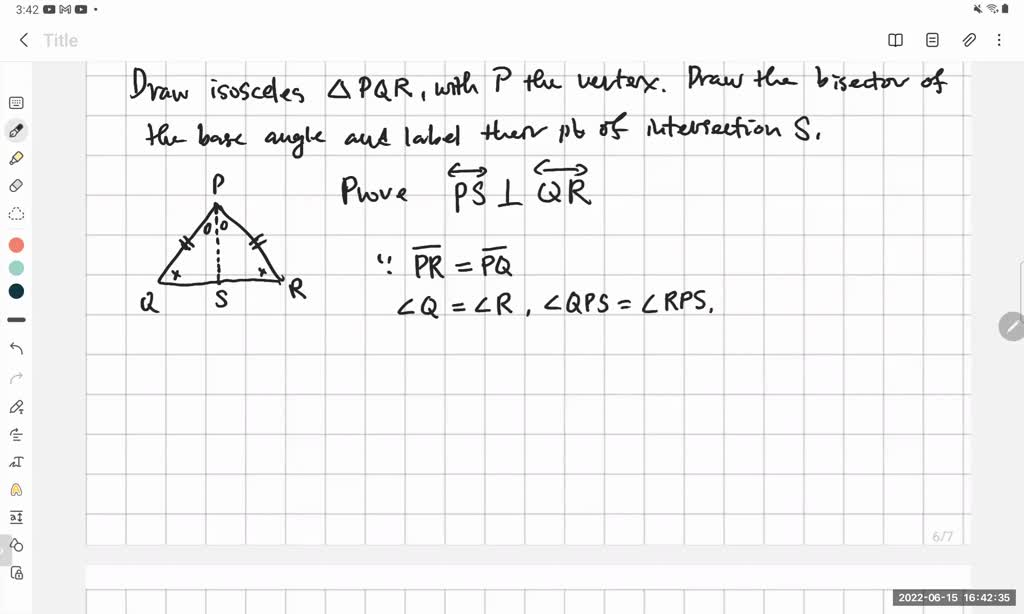 3:42
Title
Draw isosceles △PQR, with P the vertex. Draw the bisector of
the base angle and label their pt of intersection S.
P
Prove PS ⊥ QR
∵ PR = PQ
Q S R
∠Q = ∠R, ∠QPS = ∠RPS.
6/7
2022-06-15 16:42:35